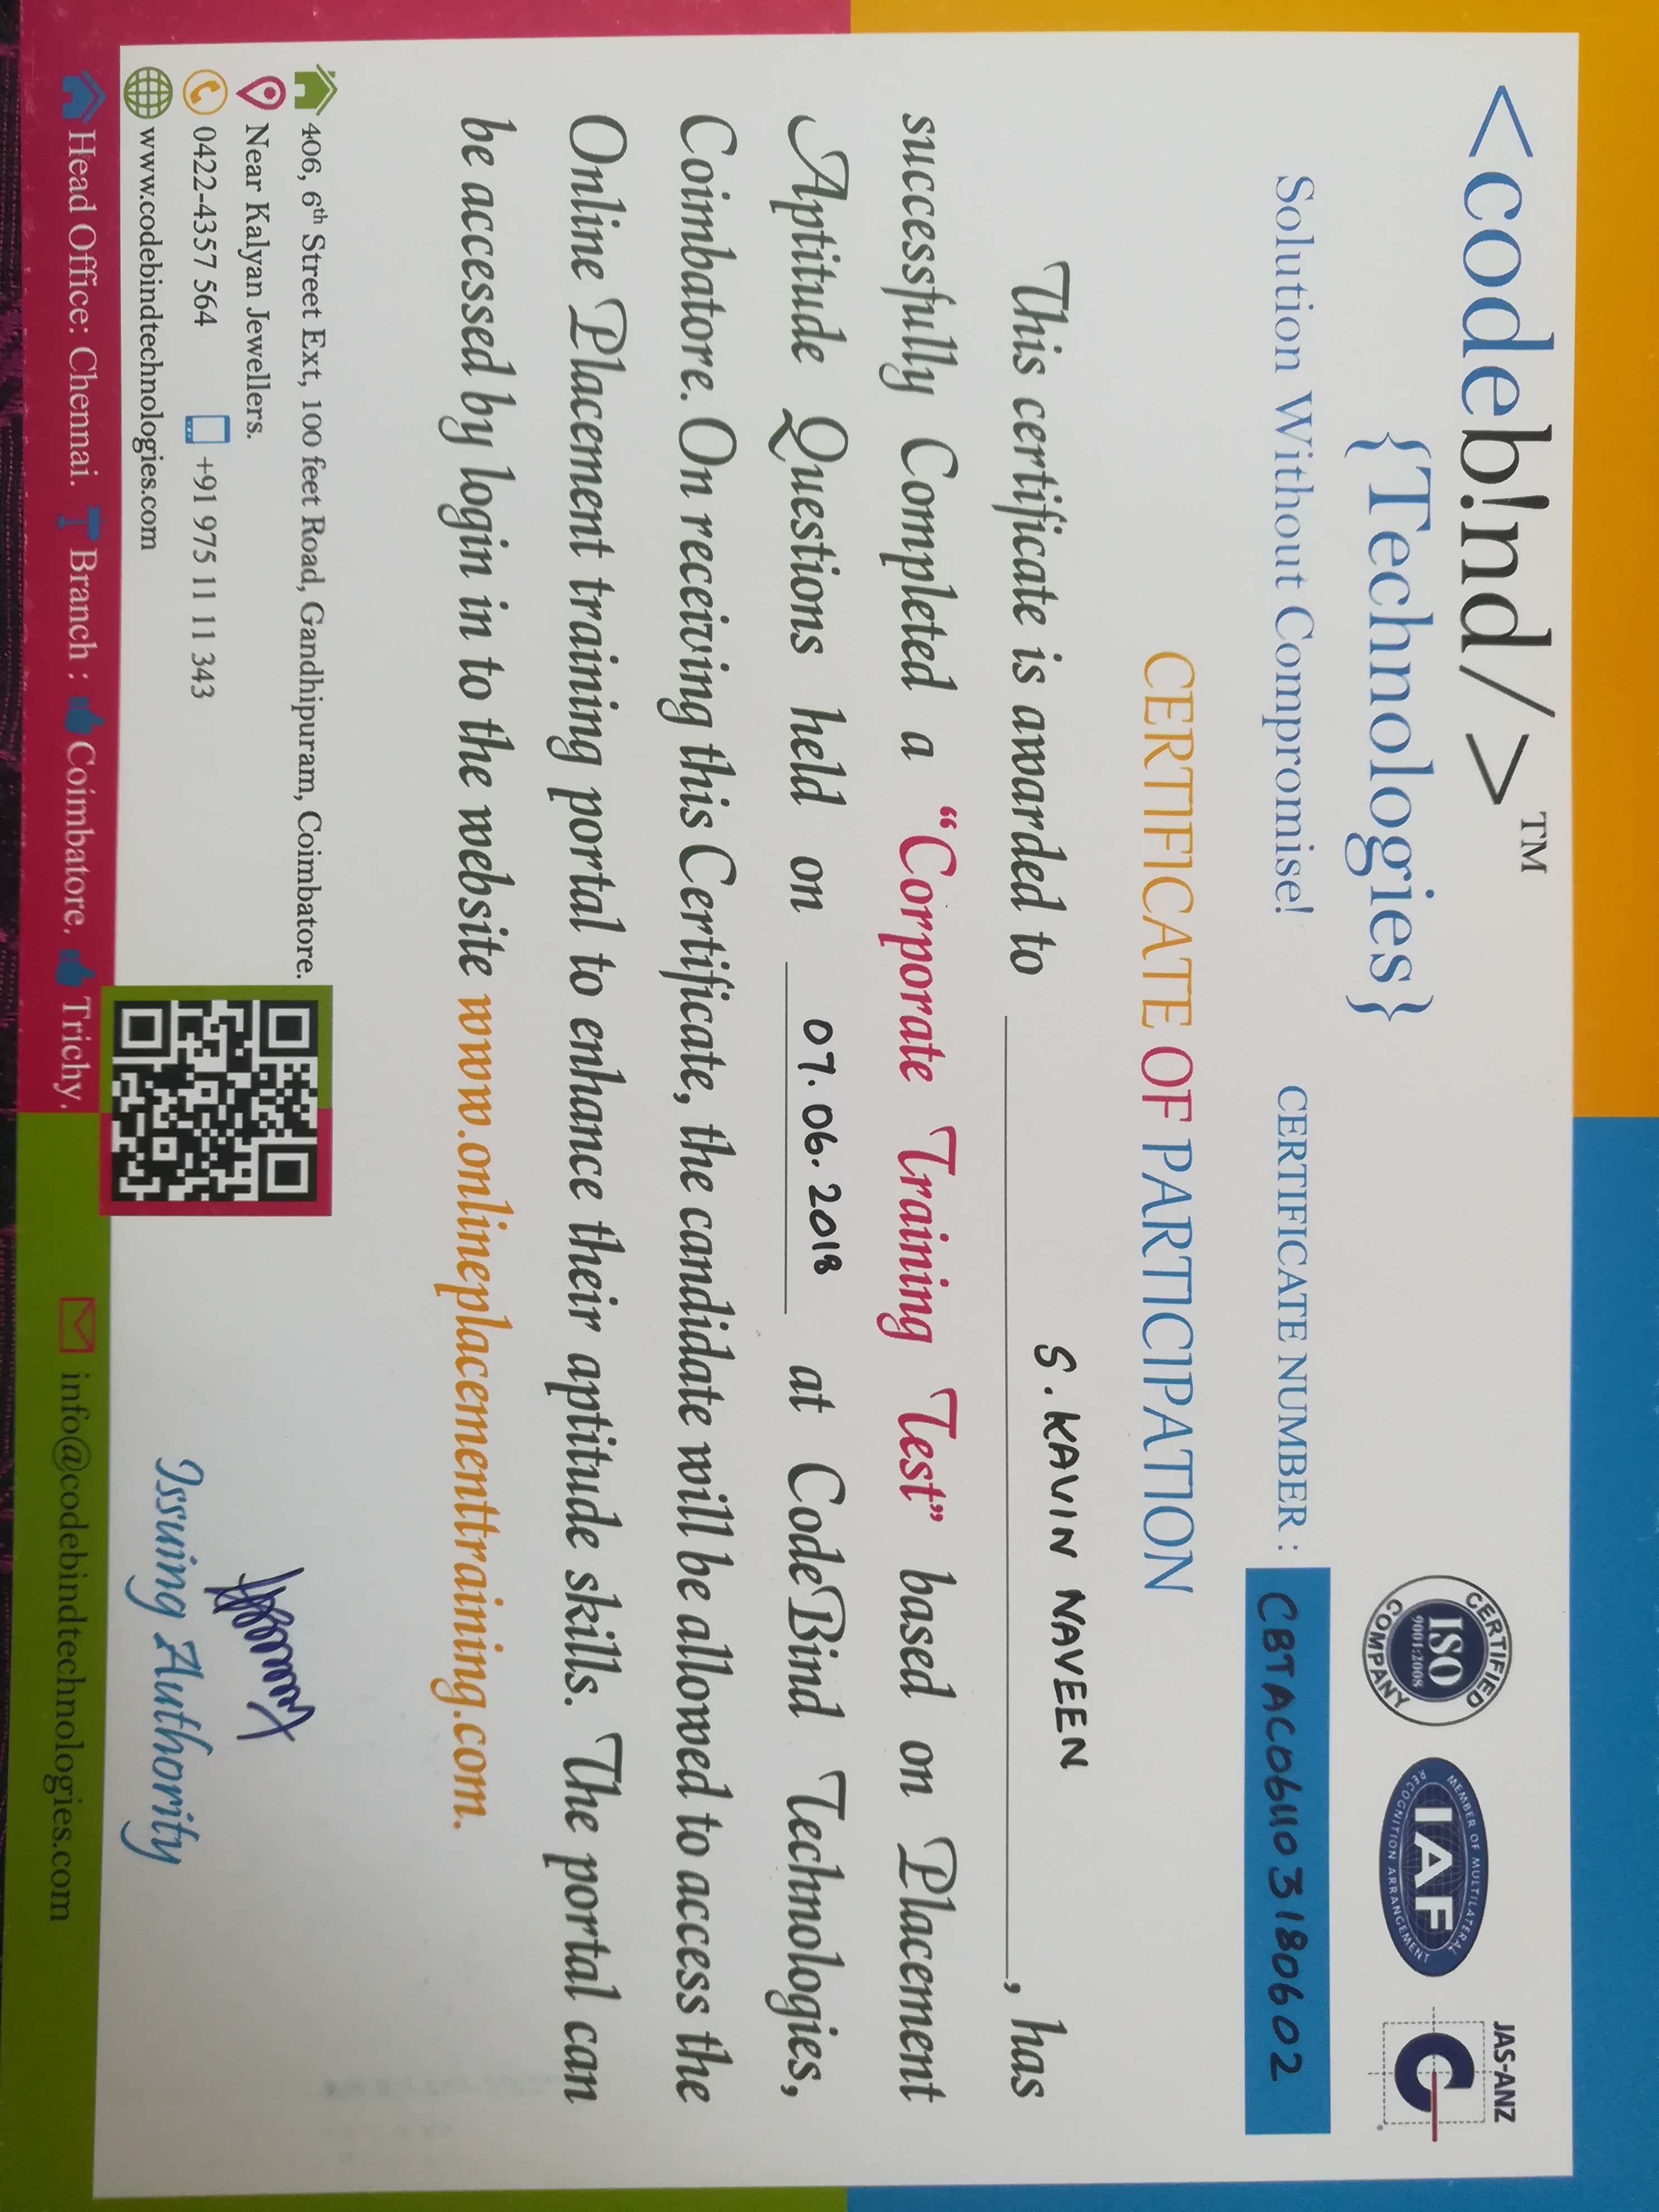 <codeb!nd/>™
{Technologies}
Solution Without Compromise!
CERTIFIED
ISO
9001:2008
COMPANY
MEMBER OF MULTILATERAL
IAF
RECOGNITION ARRANGEMENT
JAS-ANZ
CERTIFICATE NUMBER :
CERTIFICATE OF PARTICIPATION
This certificate is awarded to S. KAVIN NAVEEN, has
successfully Completed a “Corporate Training Test” based on Placement
Aptitude Questions held on 07. 06. 2018 at CodeBind Technologies,
Coimbatore. On receiving this Certificate, the candidate will be allowed to access the
Online Placement training portal to enhance their aptitude skills. The portal can
be accessed by login in to the website www.onlineplacementtraining.com.
406, 6th Street Ext, 100 feet Road, Gandhipuram, Coimbatore.
Near Kalyan Jewellers.
0422-4357 564 +91 975 11 11 343
www.codebindtechnologies.com
Issuing Authority
Head Office: Chennai. Branch : Coimbatore. Trichy.
info@codebindtechnologies.com